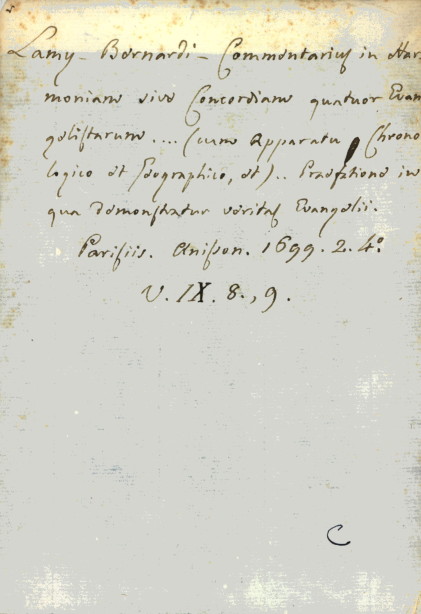 Lamy - Bernardi - Commentarius in Har-
moniam sive Concordiam quatuor Evan
gelistarum .... (cum Apparatu Chrono
logico et Geographico, et) .. Praefatione in
qua demonstratur veritas Evangelii.
Parisiis. Anisson. 1699. 2. 4º.
V. IX. 8., 9.
C